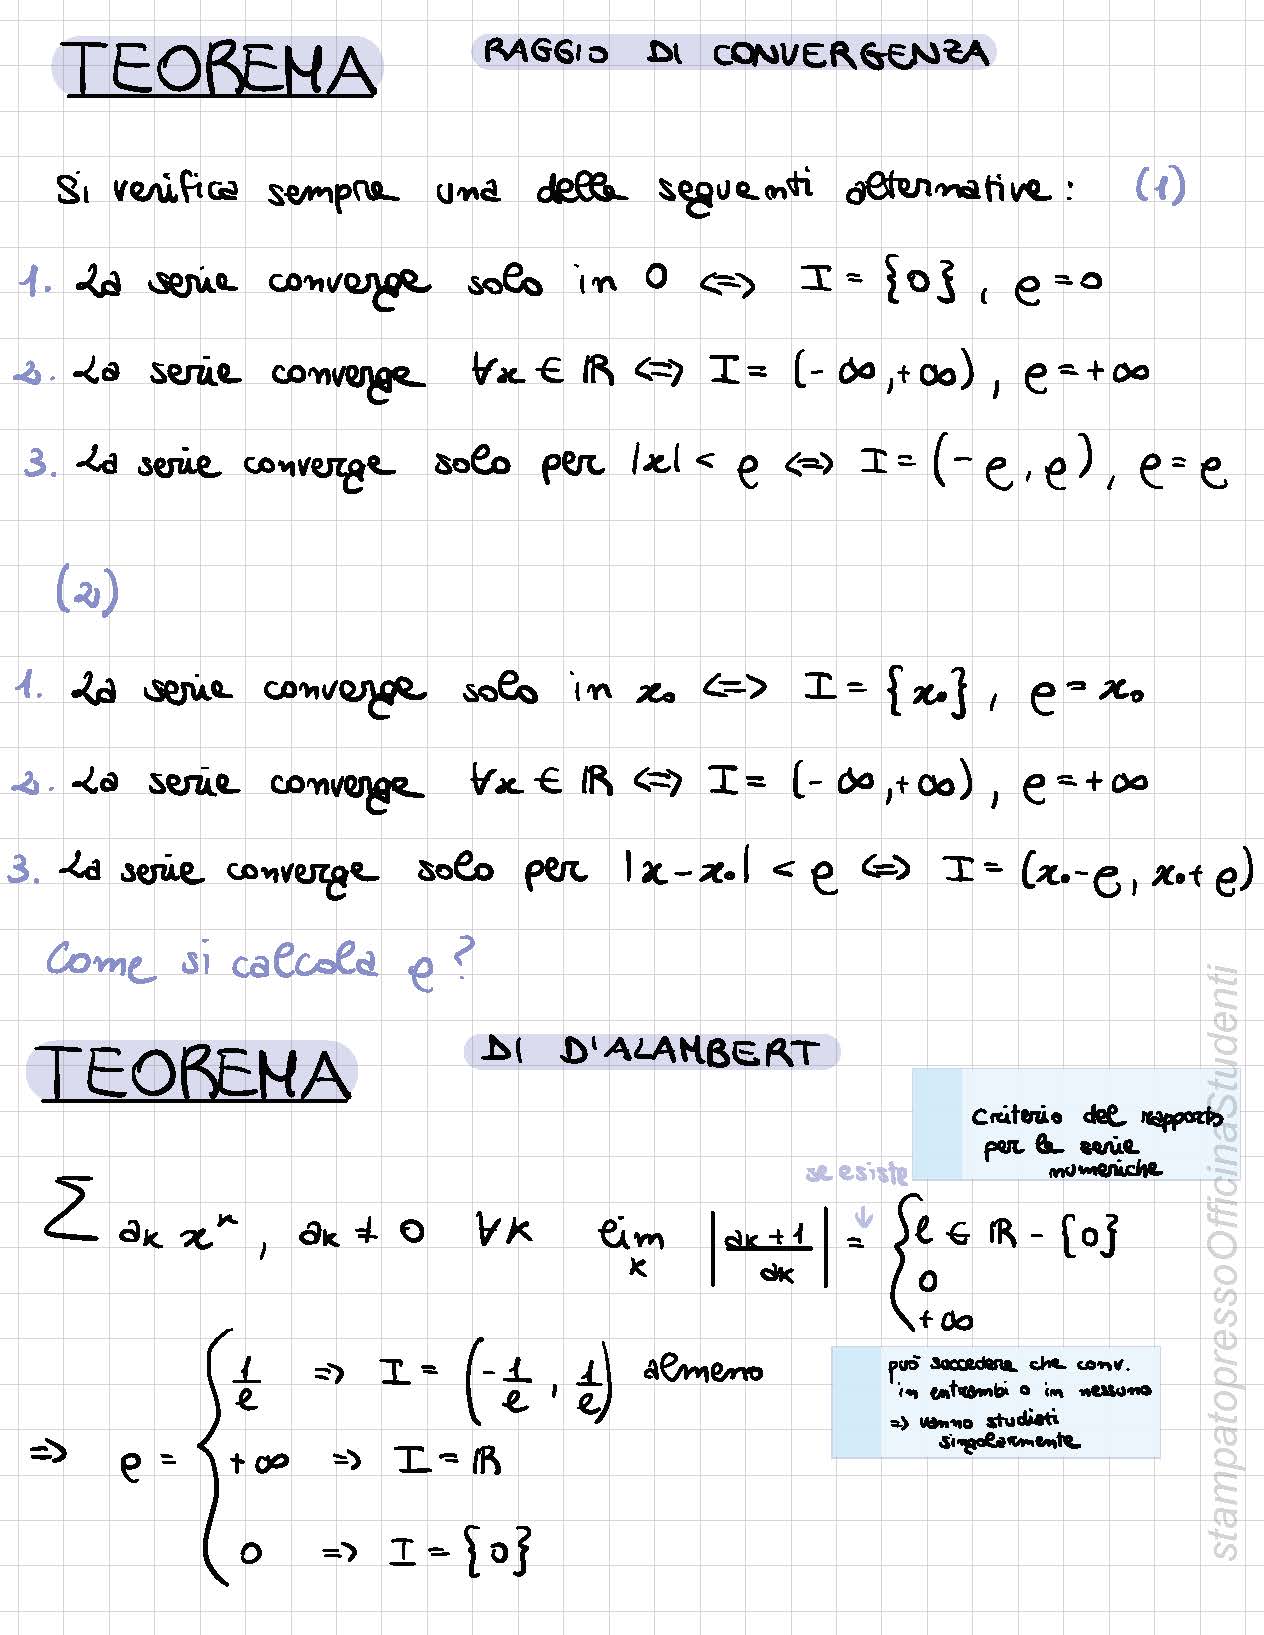 TEOREMA RAGGIO DI CONVERGENZA
Si verifica sempre una delle seguenti alternative: (1)
1. La serie converge solo in 0 <=> I = {0}, ρ = 0
2. La serie converge ∀x ∈ ℝ <=> I = (-∞,+∞), ρ = +∞
3. La serie converge solo per |x| < ρ <=> I = (-ρ, ρ), ρ = ρ
(2)
1. La serie converge solo in x₀ <=> I = {x₀}, ρ = x₀
2. La serie converge ∀x ∈ ℝ <=> I = (-∞,+∞), ρ = +∞
3. La serie converge solo per |x-x₀| < ρ <=> I = (x₀-ρ, x₀+ρ)
Come si calcola ρ?
TEOREMA DI D'ALAMBERT
Criterio del rapporto
per le serie
numeriche
se esiste
↓
∑ aₖ xᵏ, aₖ ≠ 0 ∀k lim k |ak+1 / ak| = { ℓ ∈ ℝ - {0}
0
+∞
=> ρ = { 1/ℓ => I = (-1/ℓ, 1/ℓ) almeno
+∞ => I = ℝ
0 => I = {0}
può succedere che conv.
in entrambi o in nessuno
=> vanno studiati
singolarmente
stampatopressoOfficinaStudenti